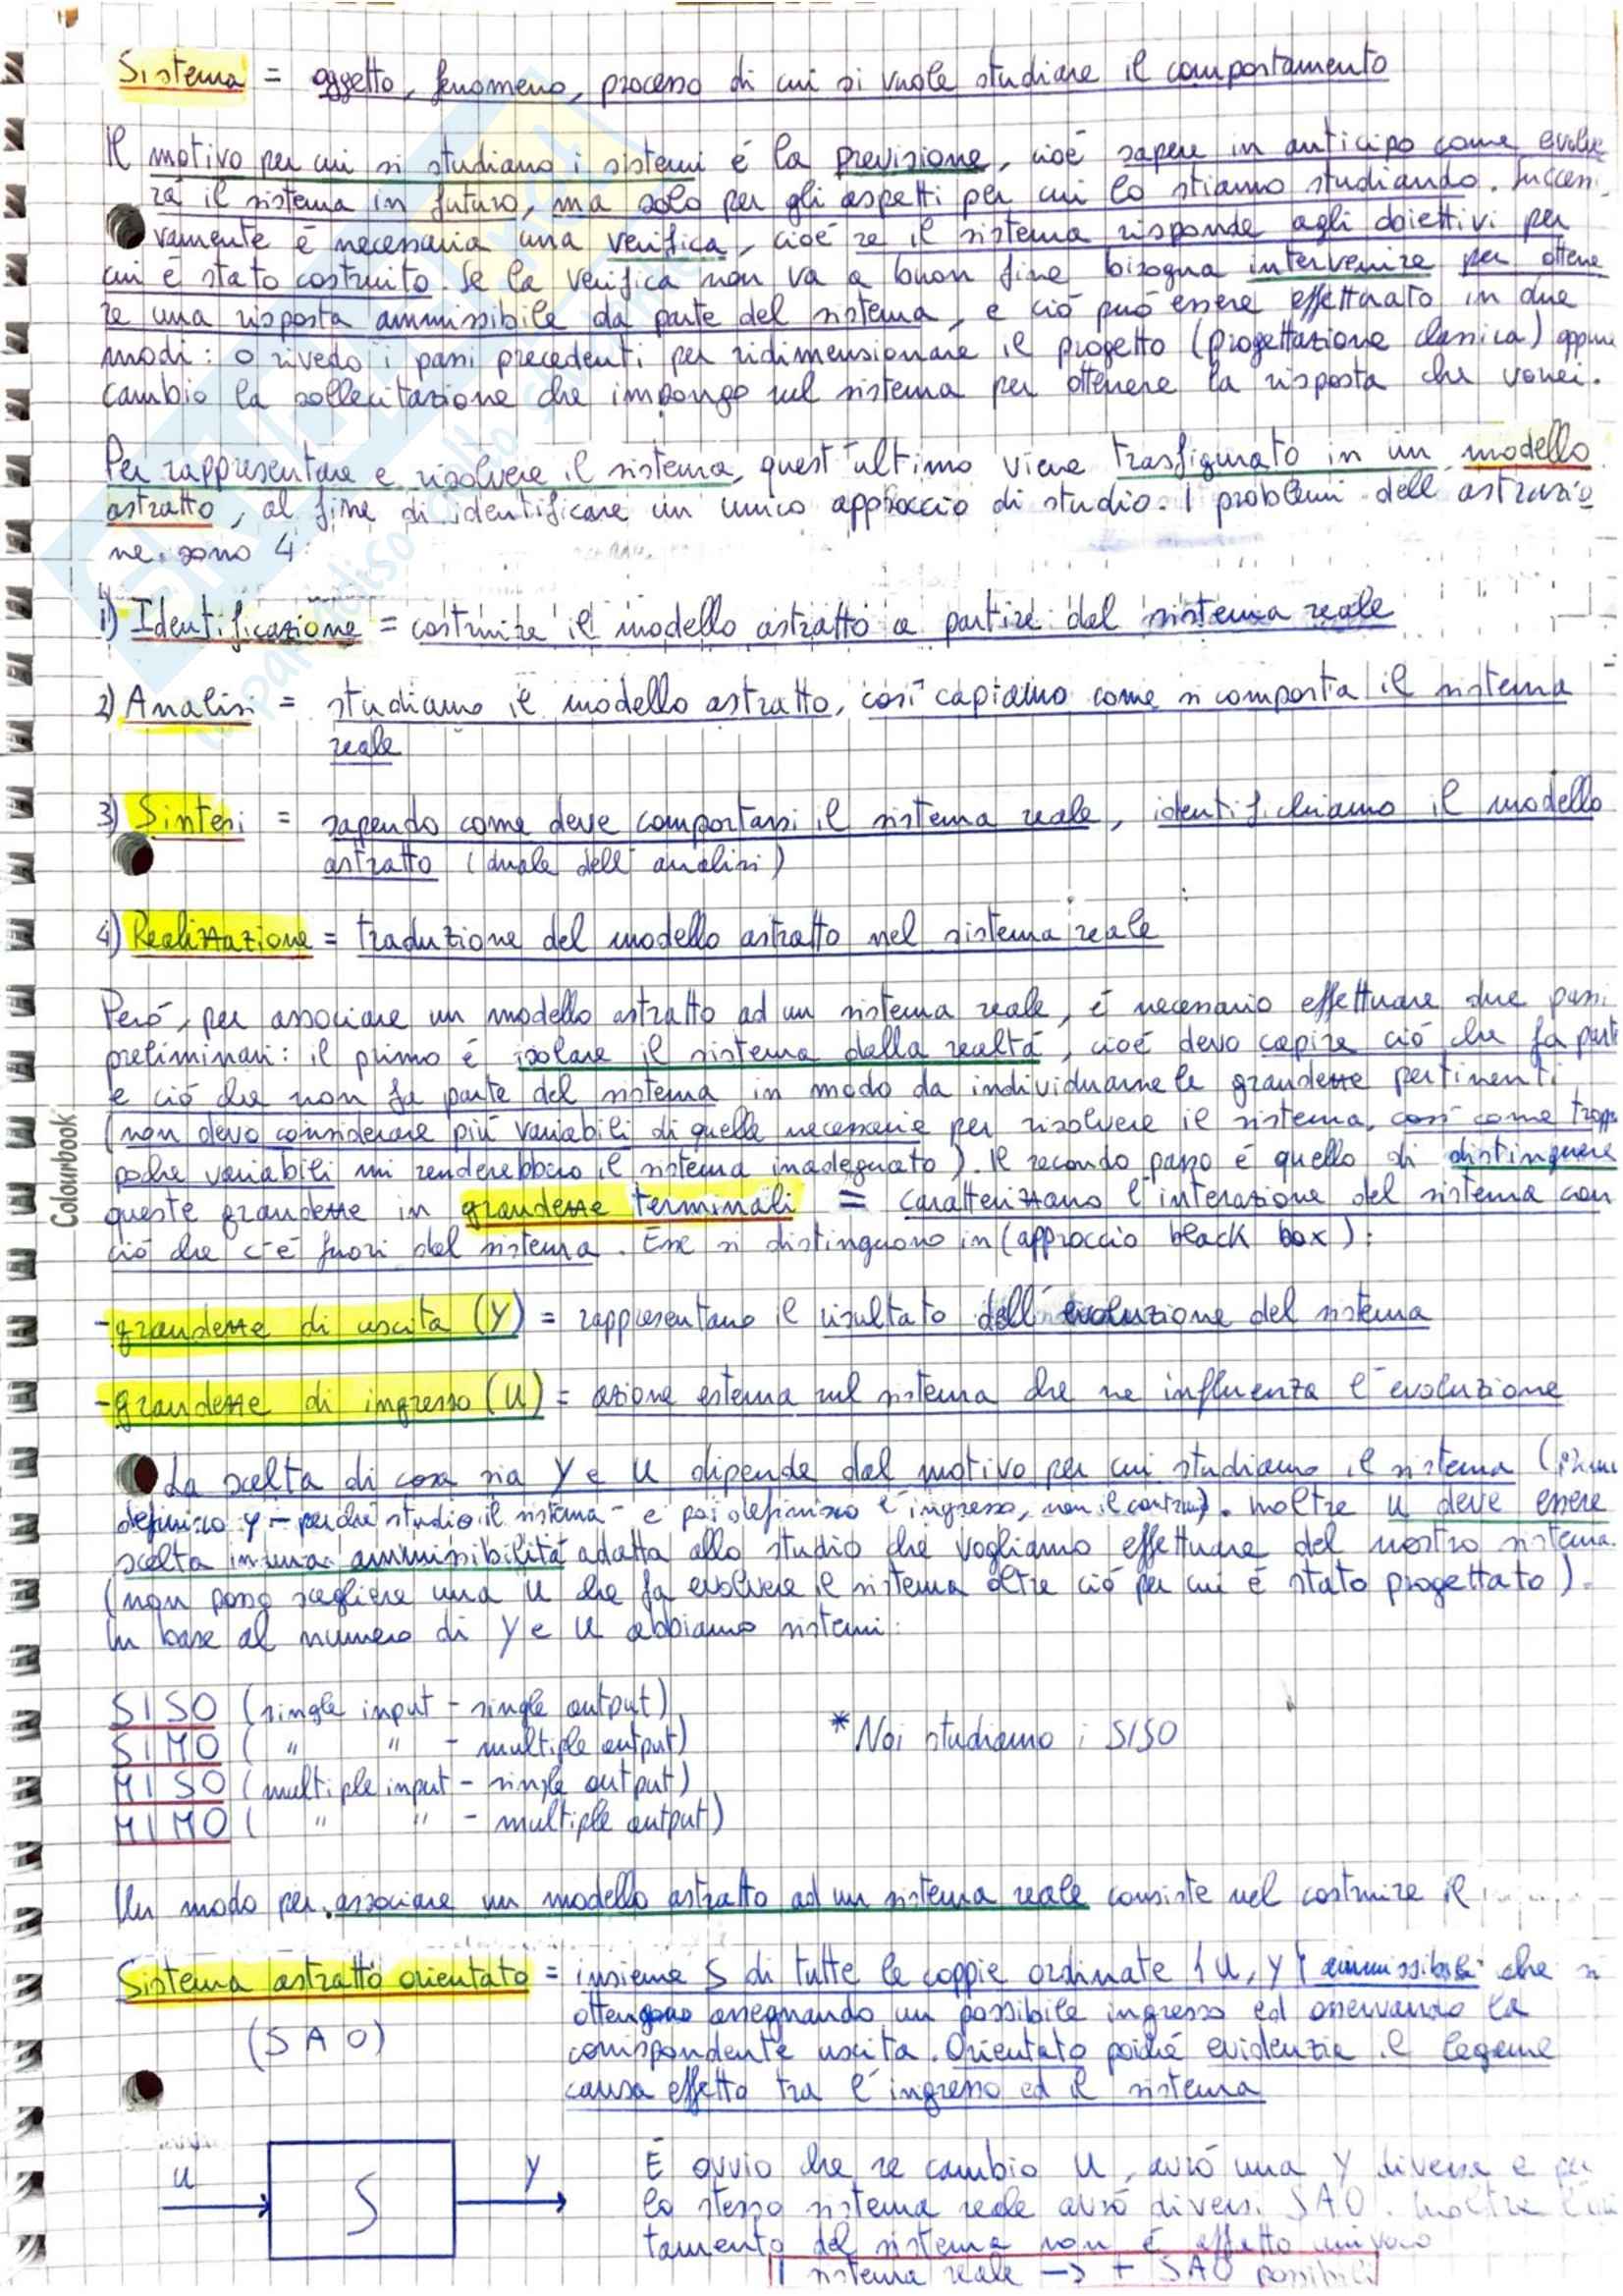 Sistema = oggetto, fenomeno, processo di cui si vuole studiare il comportamento
Il motivo per cui si studiano i sistemi é la previsione, cioé sapere in anticipo come evolve
rá il sistema in futuro, ma solo per gli aspetti per cui lo stiamo studiando. Successi
vamente é necessaria una verifica, cioé se il sistema risponde agli obiettivi per
cui é stato costruito. Se la verifica non va a buon fine bisogna intervenire per ottene
re una risposta ammissibile da parte del sistema, e ció puó essere effettuato in due
modi: o rivedo i passi precedenti per ridimensionare il progetto (progettazione classica) oppure
cambio la sollecitazione che impongo sul sistema per ottenere la risposta che vorrei.
Per rappresentare e risolvere il sistema, quest'ultimo viene trasfigurato in un modello
astratto, al fine di identificare un unico approccio di studio. I problemi dell'astrazio
ne sono 4:
1) Identificazione = costruire il modello astratto a partire dal sistema reale
2) Analisi = studiamo il modello astratto, cosí capiamo come si comporta il sistema
reale
3) Sintesi = sapendo come deve comportarsi il sistema reale, identifichiamo il modello
astratto (duale dell'analisi)
4) Realizzazione = traduzione del modello astratto nel sistema reale
Peró, per associare un modello astratto ad un sistema reale, é necessario effettuare due passi
preliminari: il primo é isolare il sistema dalla realtá, cioé devo capire ció che fa parte
e ció che non fa parte del sistema in modo da individuarne le grandezze pertinenti
(non devo considerare piú variabili di quelle necessarie per risolvere il sistema, cosí come troppe
poche variabili mi renderebbero il sistema inadeguato). Il secondo passo é quello di distinguere
queste grandezze in grandezze terminali = caratterizzano l'interazione del sistema con
ció che c'é fuori dal sistema. Esse si distinguono in (approccio black box):
Colourbook
-grandezze di uscita (y) = rappresentano il risultato dell'evoluzione del sistema
-grandezze di ingresso (u) = azione esterna sul sistema che ne influenza l'evoluzione
La scelta di cosa sia y e u dipende dal motivo per cui studiamo il sistema (prima
definisco y - perché studio il sistema - e poi definisco l'ingresso, non il contrario). Inoltre u deve essere
scelta in una ammissibilitá adatta allo studio che vogliamo effettuare del nostro sistema.
(non posso scegliere una u che fa evolvere il sistema oltre ció per cui é stato progettato).
In base al numero di y e u abbiamo sistemi:
SISO (single input - single output)
SIMO ( " " - multiple output) *Noi studiamo i SISO
MISO (multiple input - single output)
MIMO ( " " - multiple output)
Un modo per associare un modello astratto ad un sistema reale consiste nel costruire il
Sistema astratto orientato = insieme S di tutte le coppie ordinate {u, y} ammissibili che si
ottengono assegnando un possibile ingresso ed osservando la
(SAO) corrispondente uscita. Orientato poiché evidenzia il legame
causa effetto tra l'ingresso ed il sistema
u S y
É ovvio che se cambio u, avró una y diversa e per
lo stesso sistema reale avró diversi SAO. Inoltre
tamento del sistema non é affatto univoco
1 sistema reale -> + SAO possibili